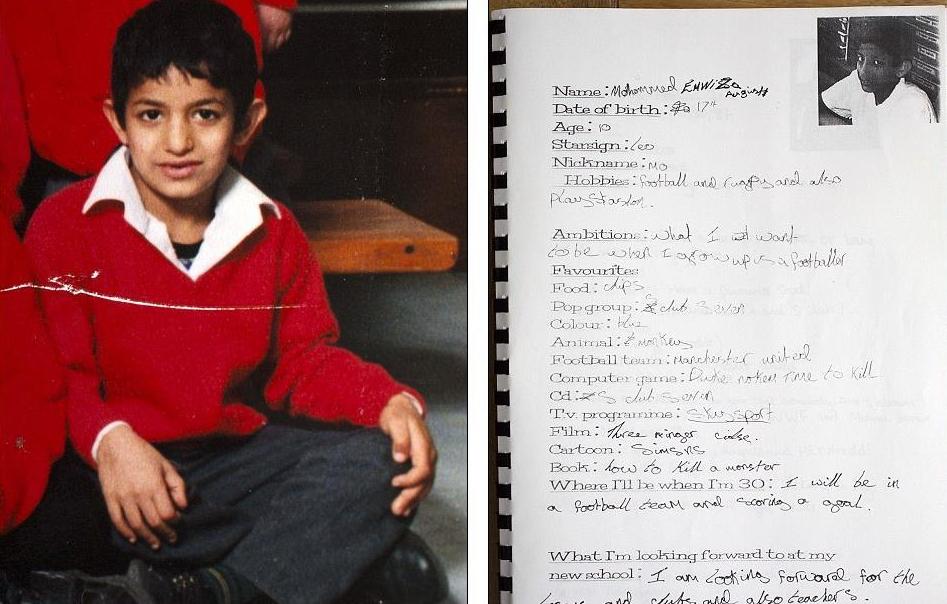 Name: Mohammed Emwiza
Date of birth: 17th August
Age: 10
Starsign: Leo
Nickname: Mo
Hobbies: football and rugpy and also
play Staston.
Ambitions: what I want
to be when I grow up is a footballer
Favourites
Food: chips
Pop group: S club Seven
Colour: blue
Animal: monkey
Football team: Manchester united
Computer game: Duke noken Time to Kill
Cd: S club Seven
T.v. programme: Sky sport
Film: Three
Cartoon: Simsns
Book: how to Kill a monster
Where I'll be when I'm 30: I will be in
a football team and scoring a goal.
What I'm looking forward to at my
new school: I am Looking forward for the
and clubs and also teachers.